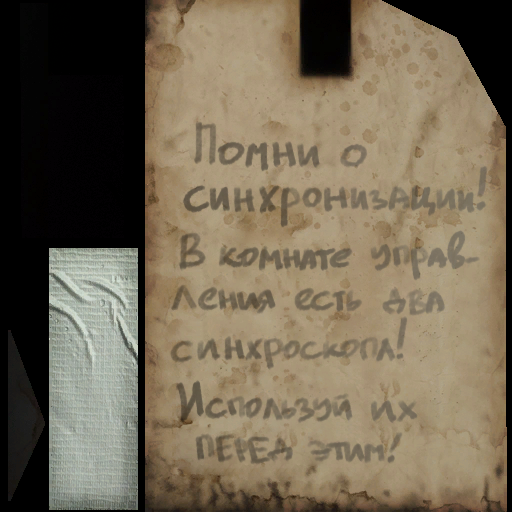 Помни о
синхронизации!
В комнате управ-
ления есть два
синхроскопа!
Используй их
ПЕРЕД этим!